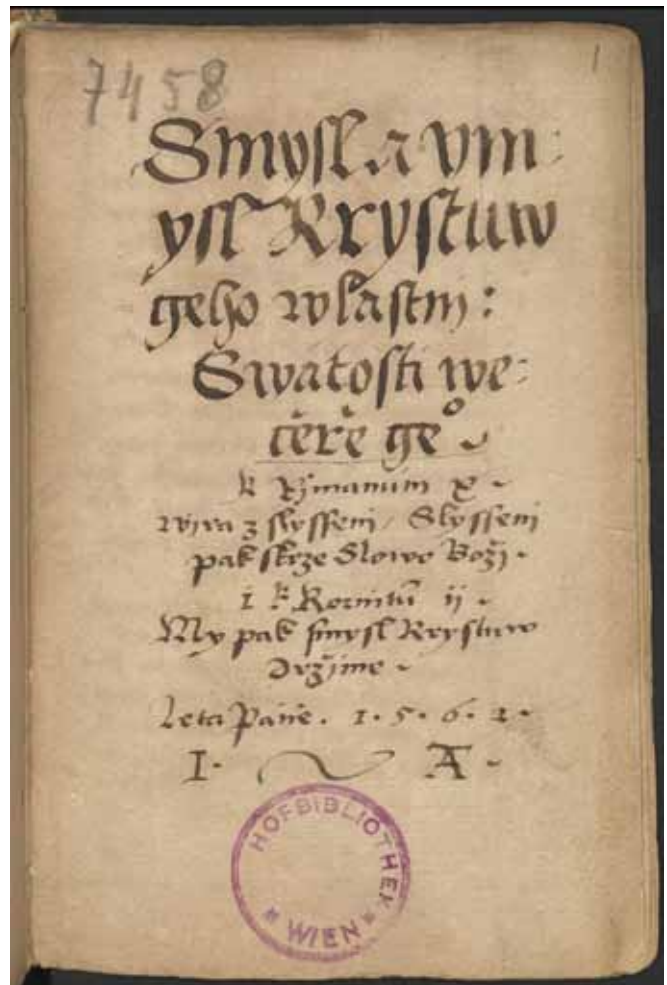 7458
1
Smysl a vm:
ysl Krystuw
geho wlastnj:
Swátosti we:
čeře geº
K Ržimanům x
Wjra z slyssenj / Slyssenj
pak skrze Slowo Božj
1 K Korintů ij
My pak smysl Krystuw
Držjme
Leta Páně. 1. 5. 6. 2.
I. A.
HOFBIBLIOTHEK
WIEN